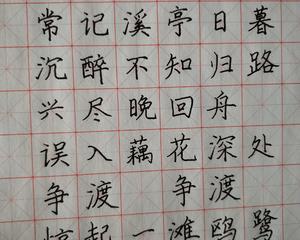 常记溪亭日暮
沉醉不知归路
兴尽晚回舟
误入藕花深处
争渡 争渡
惊起一滩鸥鹭